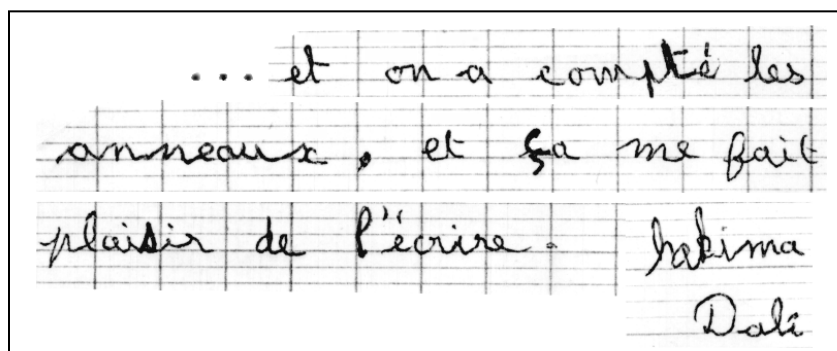 ... et on a compté les
anneaux, et ça me fait
plaisir de l'écrire. hakima
Dali